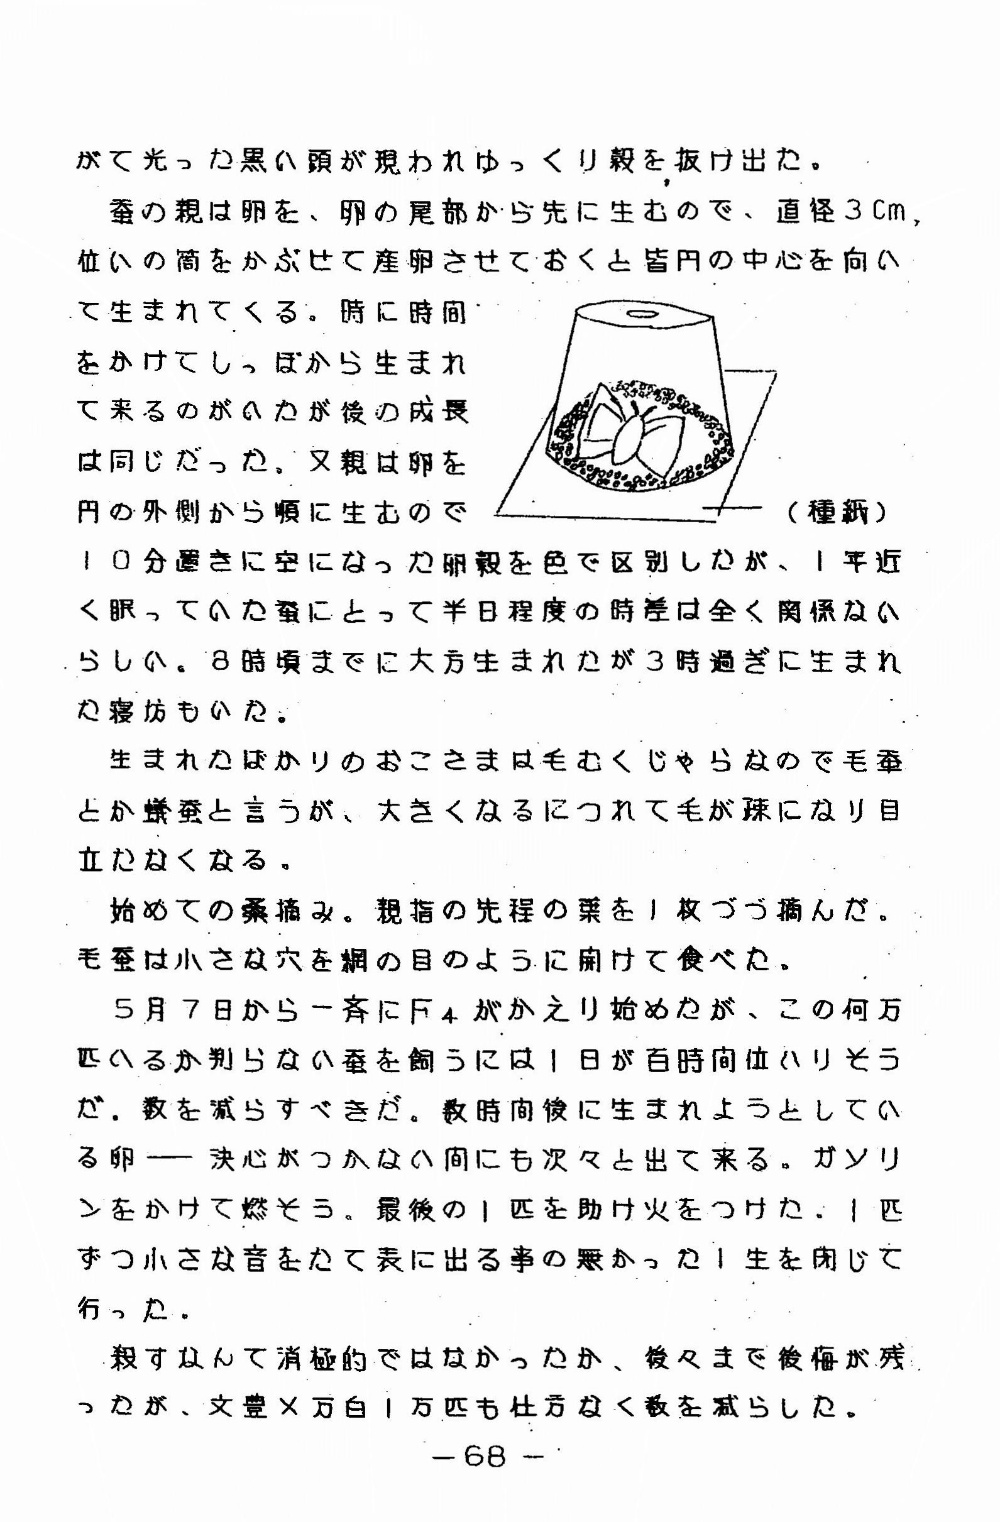 がて光った黒い頭が現われゆっくり殻を抜け出た。
蚕の親は卵を、卵の尾部から先に生むので、直径3Cm,
位いの筒をかぶせて産卵させておくと皆円の中心を向い
て生まれてくる。時に時間
をかけてしっぽから生まれ
て来るのがいたが後の成長
は同じだった。又親は卵を
円の外側から順に生むので
(種紙)
10分置きに空になった卵殻を色で区別したが、1年近
く眠っていた蚕にとって半日程度の時差は全く関係ない
らしい。8時頃までに大方生まれたが3時過ぎに生まれ
た寝坊もいた。
生まれたばかりのおこさまは毛むくじゃらなので毛蚕
とか蟻蚕と言うが、大きくなるにつれて毛が疎になり目
立たなくなる。
始めての桑摘み。親指の先程の葉を1枚づつ摘んだ。
毛蚕は小さな穴を網の目のように開けて食べた。
5月7日から一斉にF4がかえり始めたが、この何万
匹いるか判らない蚕を飼うには1日が百時間位いりそう
だ。数を減らすべきだ。数時間後に生まれようとしてい
る卵―― 決心がつかない間にも次々と出て来る。ガソリ
ンをかけて燃そう。最後の1匹を助け火をつけた。1匹
ずつ小さな音をたて表に出る事の無かった1生を閉じて
行った。
殺すなんて消極的ではなかったか、後々まで後悔が残
ったが、文豊×万白1万匹も仕方なく数を減らした。
－68－